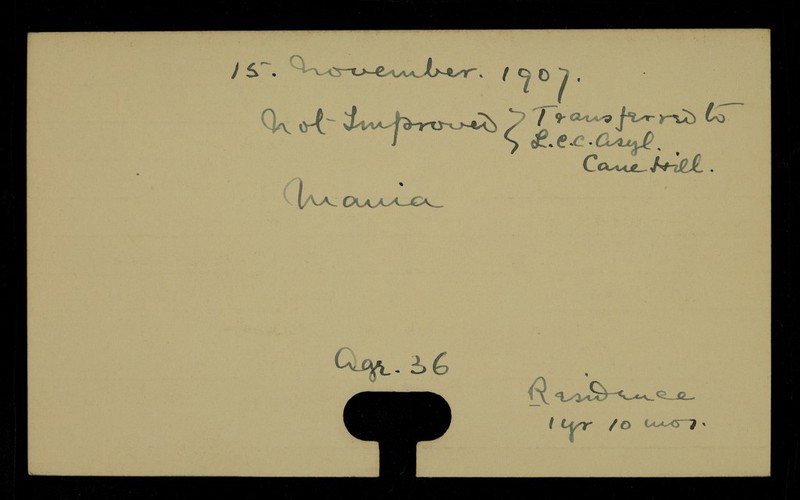 15. November. 1907.
Not Improved } Transferred to
L.C.C. Asyl.
Cane Hill.
Mania
Age. 36
Residence
1 yr 10 mos.